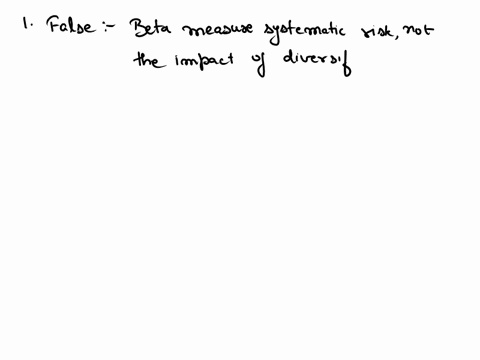 1. False :- Beta measure systematic risk, not
the impact of diversif